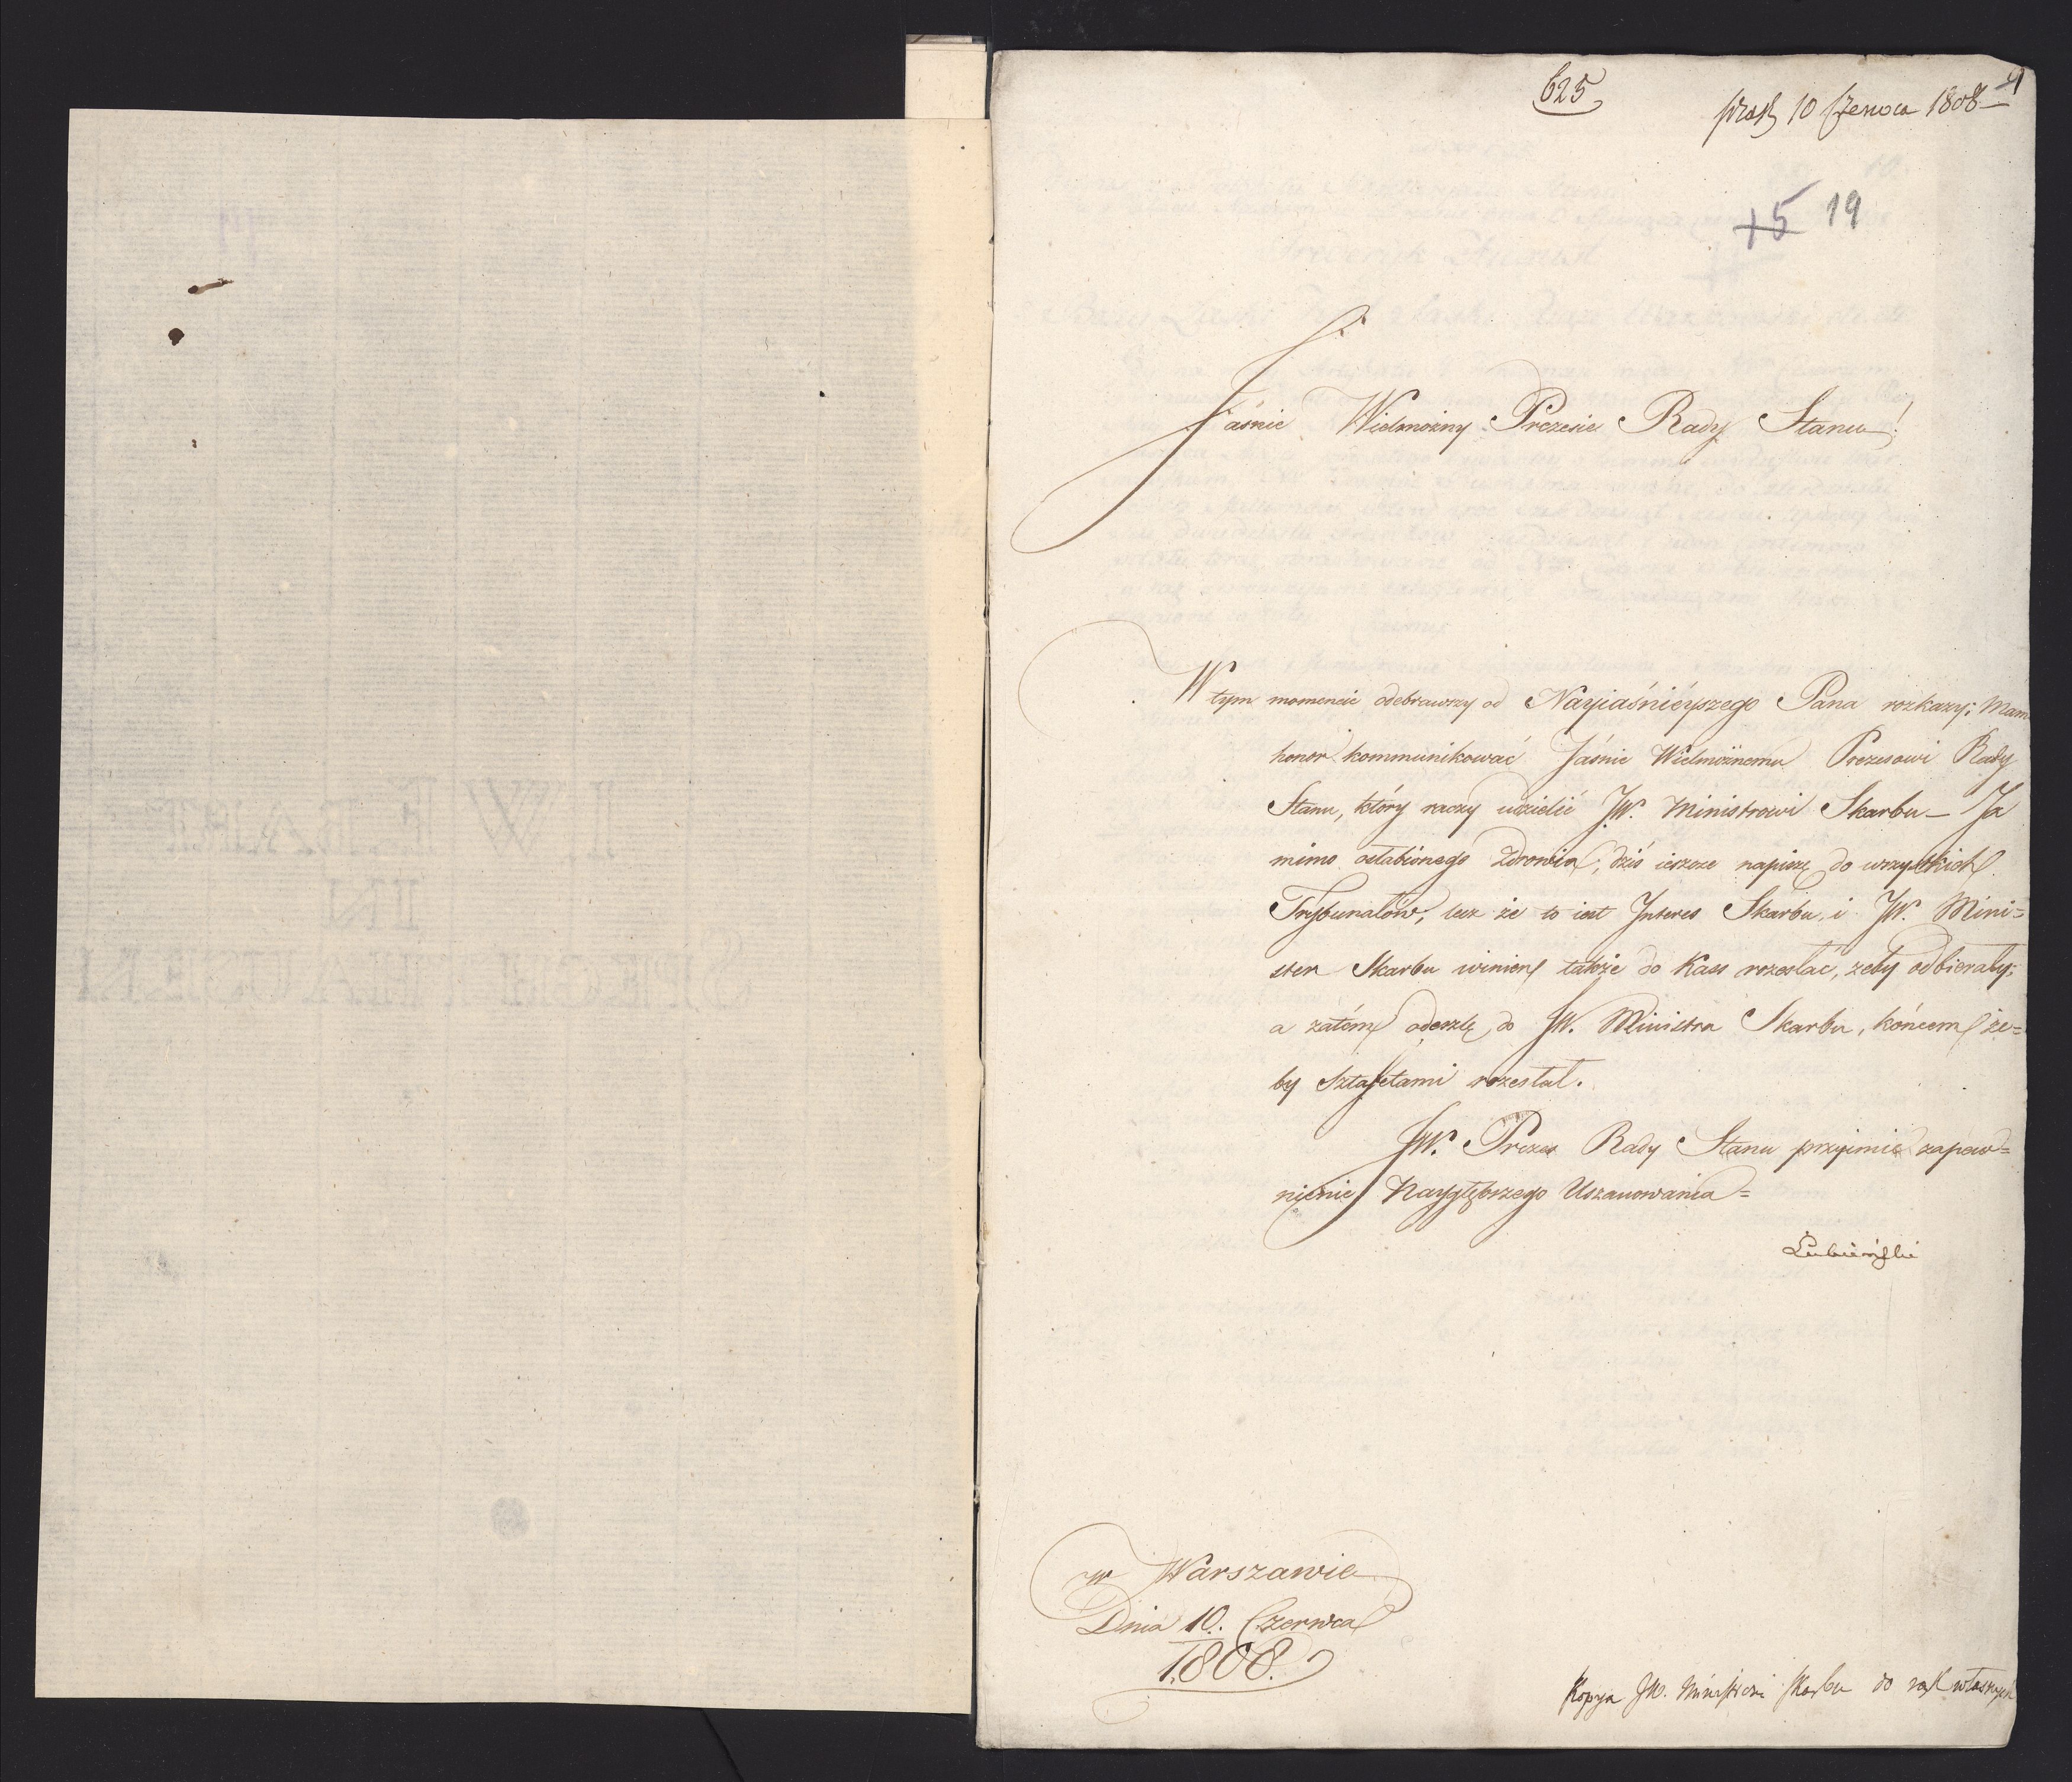 625
praes 10 Czerwca 1808
9
+5 19
Jáśnie Wielmożny Prezesie Rady Stanu!
W tym momencie odebrawszy od Nayiaśnieyszego Pana rozkazy; Mam
honor kommunikować Jáśnie Wielmożnemu Prezesowi Rady
Stanu, który raczy udzielić JW. Ministrowi Skarbu_ Ja
mimo osłabionego Zdrowia, dziś ieszcze napiszę do wszystkich
Trybunałów, lecz że to iest Jnteres Skarbu, i JW. Mini=
ster Skarbu winien także do Kass rozesłać, żeby odbierały;
a zatem odeszlę do JW. Ministra Skarbu, końcem że=
by Sztafetami rozesłał.
JW. Prezes Rady Stanu przyimie zapew=
nienie Naygłębszego Uszanowania=
Łubieński
w Warszawie
Dnia 10. Czerwca
1808.
Kopya JW. Ministrowi Skarbu do rąk własnych
I. W E
IN